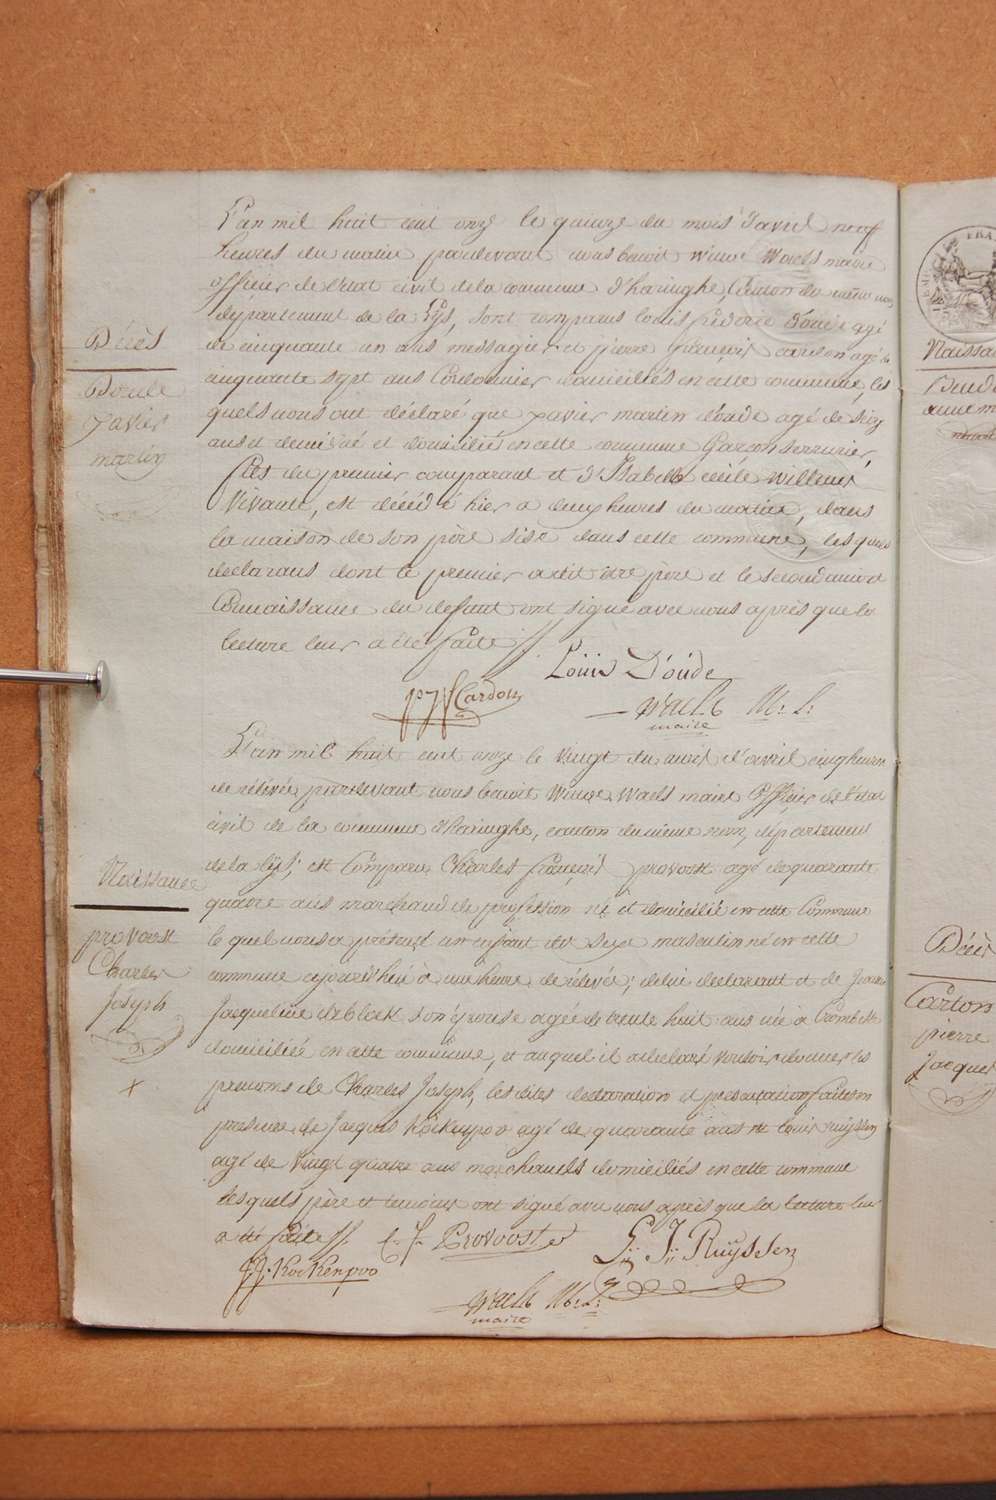 L'an mil huit cent onze le quinze du mois d'avril neuf
heures du matin pardevant nous benoit Winoc Waels maire
officier de l'etat civil de la commune d'haringhe, Canton du même nom,
département de la Lÿs, sont comparus Louis fréderic D'oude agé
de cinquante un ans messagier et pierre françois cardon agé de
quarante sept ans Cordonnier domiciliés en cette commune, les
quels nous ont déclaré que xavier martin d'oude agé de
ans et demi né et domicilié en cette commune Garçon serrurier,
fils du premier comparant et d'Isabelle cécile Willems
Vivante, est décédé hier a deux heures du matin, dans
la maison de son père sise dans cette commune, les quels
declarans dont le premier a dit etre père et le second avoir
Connaissance du defunt ont signé avec nous après que la
lecture leur a été faite //
Décès
Doude
Xavier
martin
Louis D'oude
Cardon
Waels Mr. L:
maire
L'an mil huit cent onze le Vingt du mois d'avril cinq heures
de relévée pardevant nous benoit Winoc Waels maire Officier de l'etat
civil de la commune d'haringhe, canton du même nom, département
de la lÿs, est Comparu Charles françois provoost agé de quarante
quatre ans marchand de profession né et domicilié en cette Commune
le quel nous a présenté un enfant du sexe masculin né en cette
commune aujourd'hui à une heure de relévée, de lui declarant et de
Jacqueline deblock son épouse agée de trente huit ans née à Crombeke
domiciliée en cette commune, et auquel il a declaré vouloir donner les
prenoms de Charles Joseph, les dites declaration et presentation faites en
presence de Jacques Kockenpoo agé de quarante ans et louis ruÿssen
agé de Vingt quatre ans marchands domiciliés en cette commune
lesquels père et temoins ont signé avec nous après que la lecture leur
a été faite //
Naissance
provoost
Charles
Joseph
x
C. f. Provoost
L: J: Ruÿssen
J. J. Kockenpoo
Waels Mr. L:
maire
FRA
Naissa
Décès
Carton
pierre
Jacques